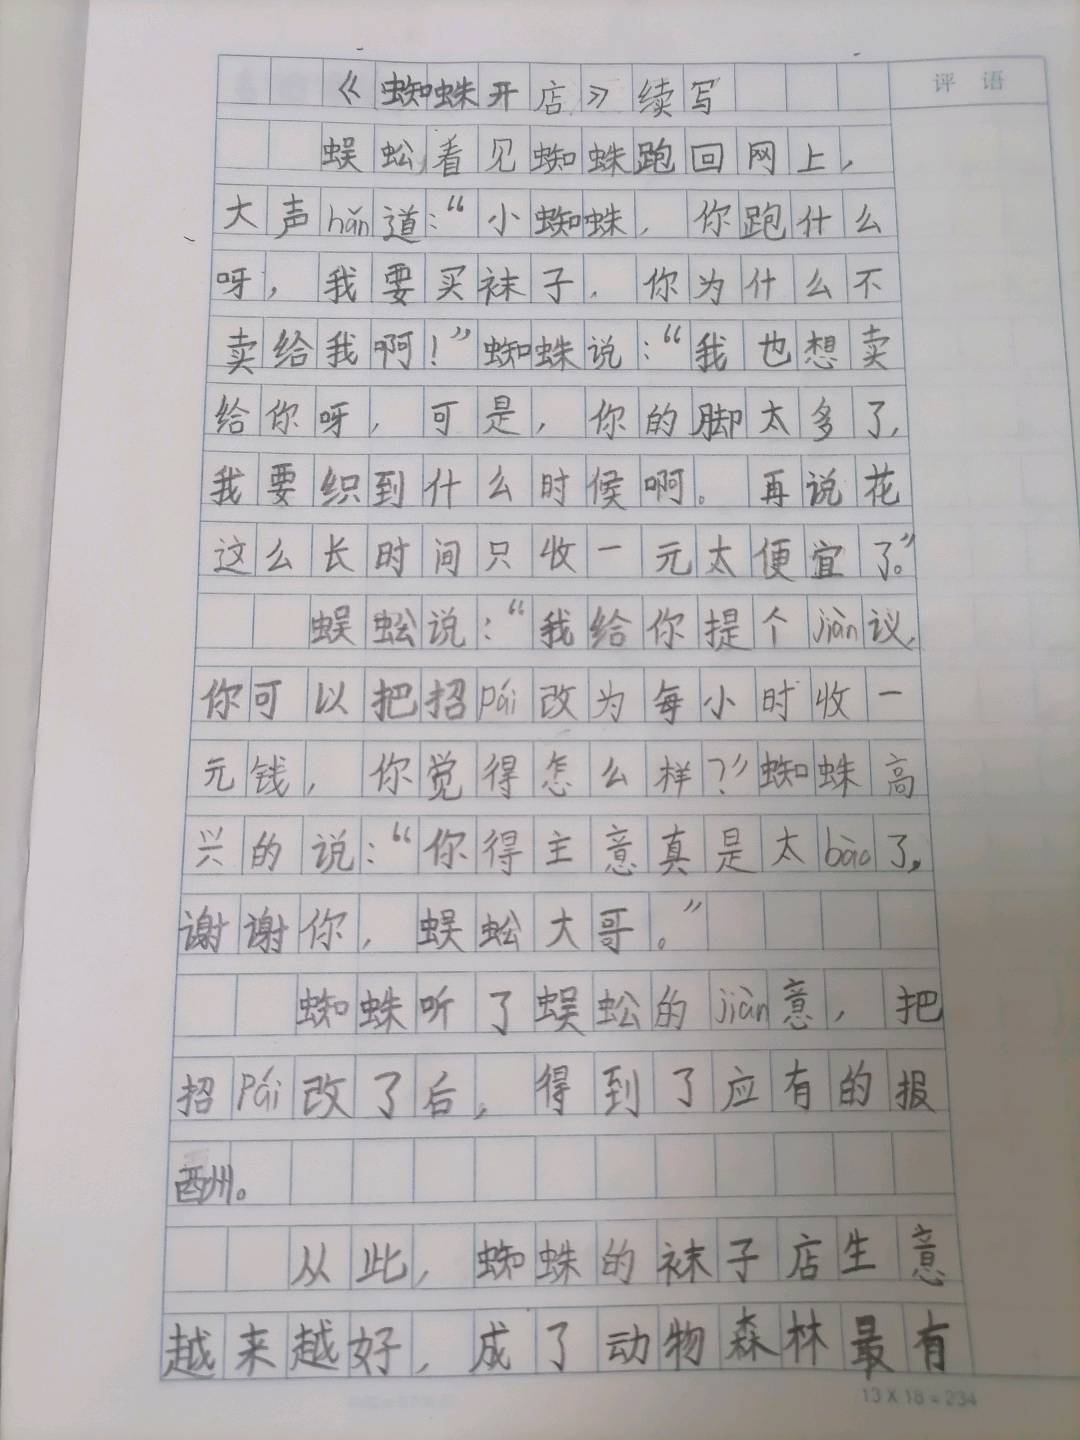 《蜘蛛开店》续写
评语
蜈蚣看见蜘蛛跑回网上，
大声hǎn道：“小蜘蛛，你跑什么
呀，我要买袜子，你为什么不
卖给我啊！”蜘蛛说：“我也想卖
给你呀，可是，你的脚太多了，
我要织到什么时候啊。再说花
这么长时间只收一元太便宜了。”
蜈蚣说：“我给你提个jiàn议，
你可以把招pái改为每小时收一
元钱，你觉得怎么样？”蜘蛛高
兴的说：“你得主意真是太bàoo了，
谢谢你，蜈蚣大哥。”
蜘蛛听了蜈蚣的jiàn意，把
招Pái改了后，得到了应有的报
酬。
从此，蜘蛛的袜子店生意
越来越好，成了动物森林最有
13×18=234